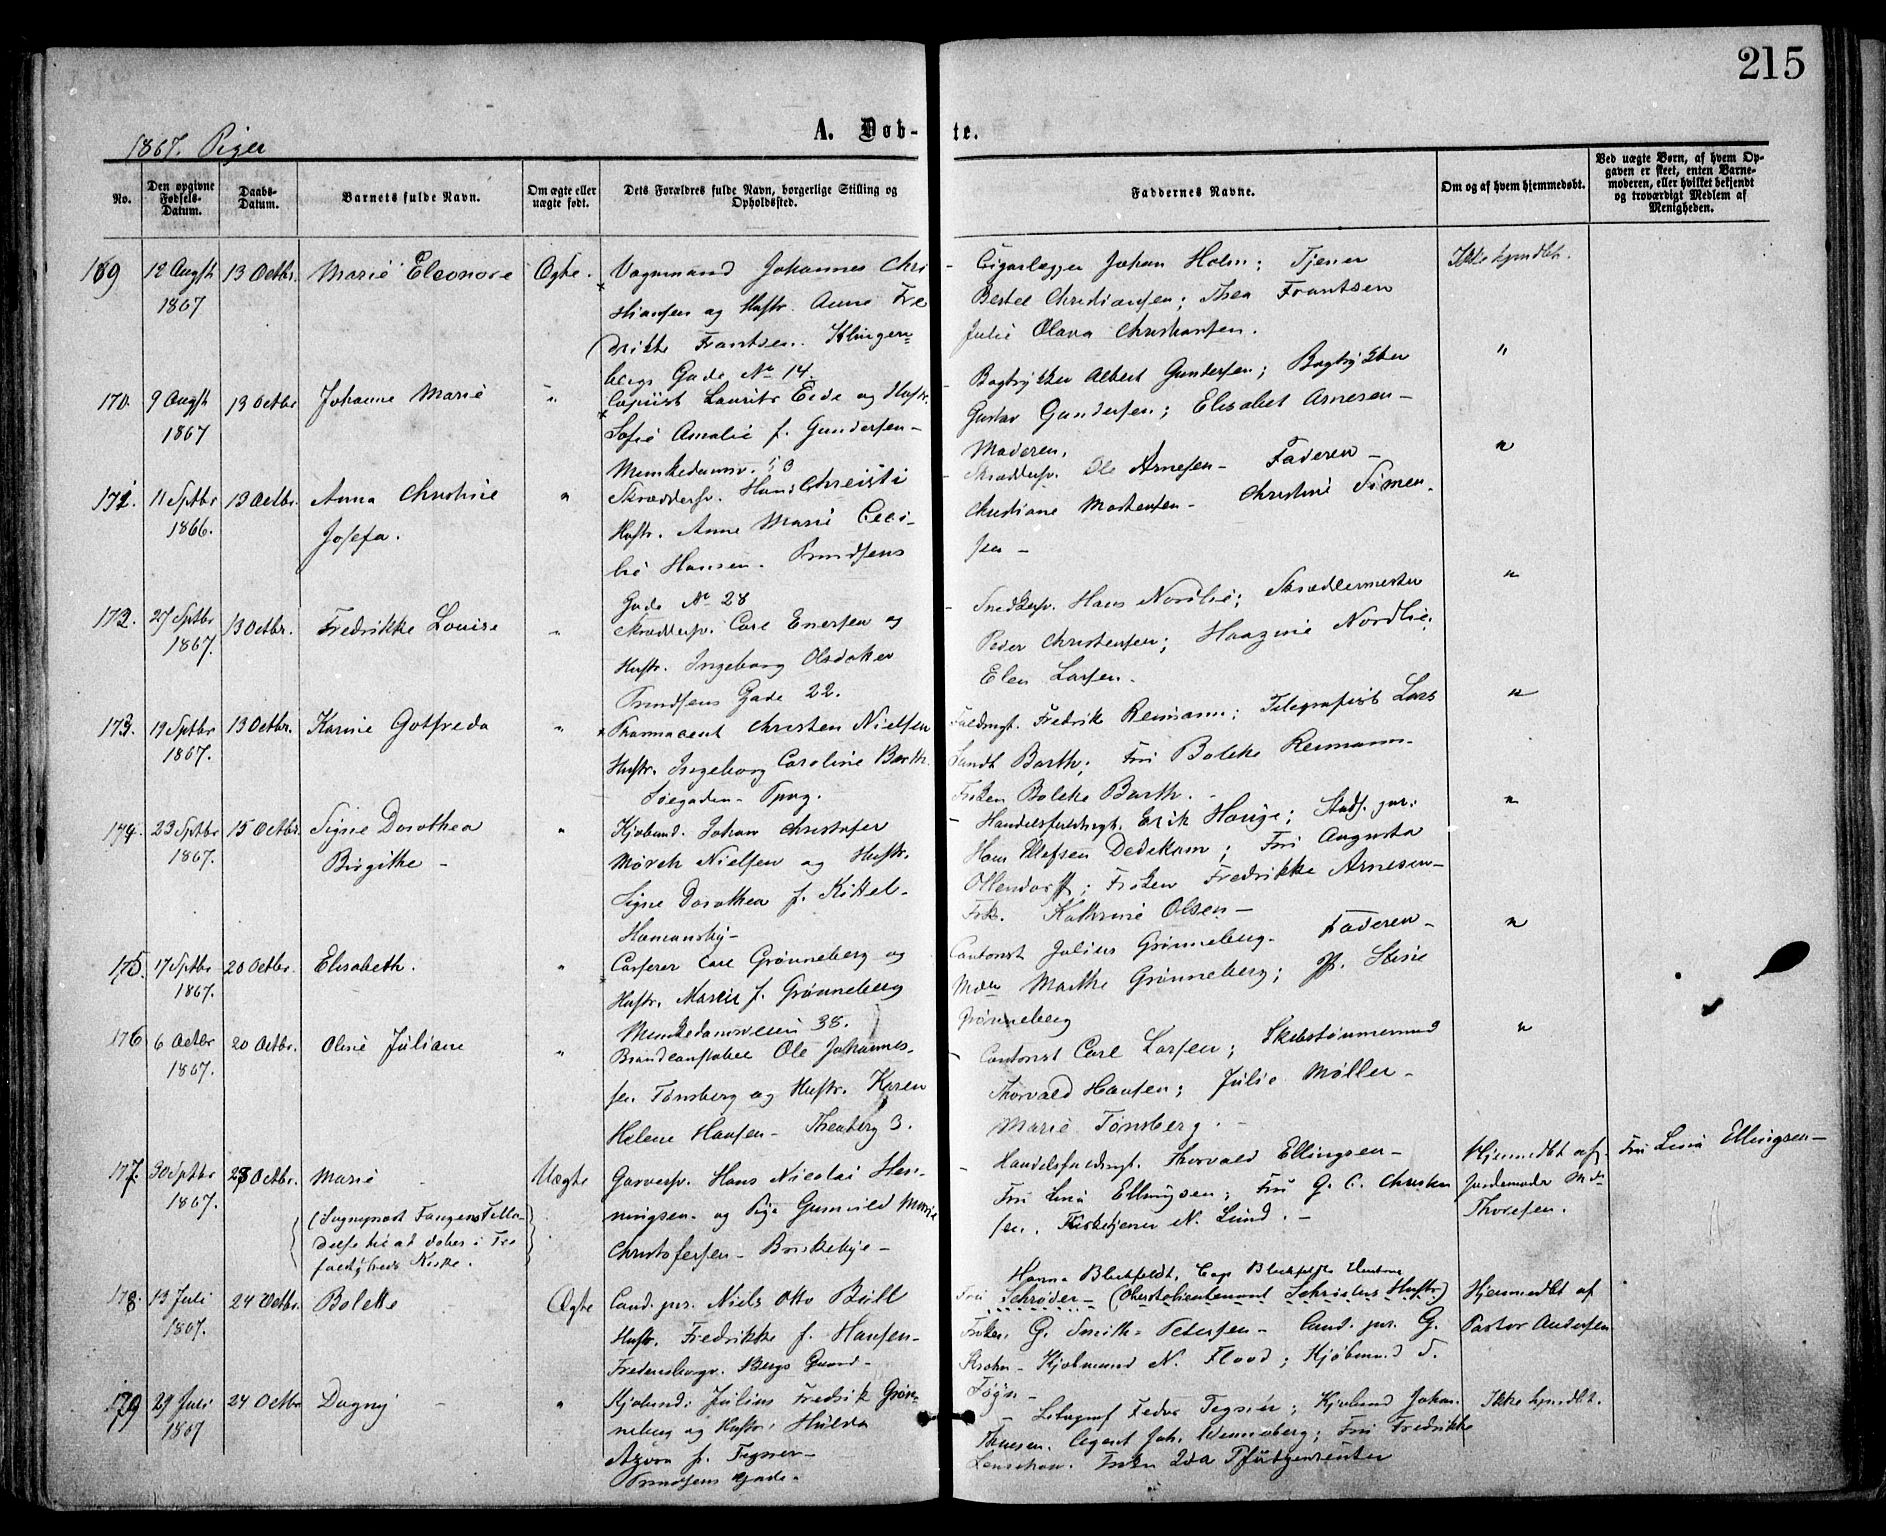 215
1867. Piger
A. Døb-te.
No.
Den opgivne Fødsels-Datum.
Daabs-Datum.
Barnets fulde Navn.
Om ægte eller uægte født.
Dets Forældres fulde Navn, borgerlige Stilling og Opholdssted.
Faddernes Navne.
Om og af hvem hjemmedøbt.
Ved uægte Børn, af hvem Opgaven er skeet, enten Barnemoderen, eller hvilket bekjendt og troværdigt Medlem af Menigheden.
169 12 Augst 1867 13 Octbr. Marie Eleonore Ægte.
Vognmand Johannes Chri
stiansen og Hustr. Anne Fre
drikke Frantsen. Klingen-
bergs Gade No 14.
Cigarlægger Johan Holm; Tjener
Bertel Christiansen; Thea Frantsen
Julie Olava Christiansen.
Ikke hjmdbt.
170. 9 Augst 1867 13 Octbr Johanne Marie "
Copiist Laurits Eide og Hustr.
Sofie Amalie f. Gundersen -
Munkedamsv. 53
Bogtrykker Albert Gundersen; Bogtrykker
Gustav Gundersen; Elisabet Arnesen -
Moderen.
"
171. 11 Sptbr 1866. 13 Octbr. Anna Christine
Josefa. "
Skræddersv. Hans Christi
Hustr. Anne Marie Ceci-
lie Hansen. Trondsens
Gade No 28
Skræddersv. Ole Arnesen - Faderen -
Christiane Mortensen - Christine Simen-
sen -
"
172. 27 Sptbr 1867. 13 Octbr. Fredrikke Louise "
Skræddersv. Carl Enersen og
Hustr. Ingeborg Olsdatter
Trondsens Gade 22.
Snedkersv. Hans Nordlie; Skræddermester
Peder Christensen; Haagine Nordlie;
Elen Larsen.
"
173. 19 Sptbr 1867. 13 Octbr. Karine Gotfreda "
Pharmaceut Christen Nielsen
Hustr. Ingeborg Caroline Barth.
Søegaden -
Fuldmgt. Fredrik Reimann; Telegrafist Lars
Sundt Barth; Fru Bolette Reimann -
Frøken Bolette Barth.
"
174. 23 Sptbr 1867. 15 Octbr. Signe Dorothea
Birgithe - "
Kjøbmd. Johan Christofer
Mørch Nielsen og Hustr.
Signe Dorothea f. Kittel -
Homansby -
Handelsfuldmgt. Erik Hauge; Stud. jur.
Hans Ellefsen Dedekam; Fru Augusta
Ollendorff; Frøken Fredrikke Arnesen -
Frk. Kathrine Olsen -
"
175. 17 Sptbr 1867. 20 Octbr. Elisabeth. "
Carl Grønneberg og
Hustr. Marie f. Grønneberg
Munkedamsveien 38.
Cantonist Julius Grønneberg. Faderen -
Marthe Grønneberg; Stine
Grønneberg
"
176 6 Octbr 1867. 20 Octbr. Oline Juliane "
Brandconstabel Ole Johannes-
sen Tønsberg og Hustr. Karen
Helene Hansen - 3.
Cantonist Carl Larsen; Skibstømmermand
Thorvald Hansen; Julie Møller -
Marie Tønsberg. -
"
177. 30 Sptbr 1867. 23 Octbr. Marie Uægte
(Sognepræst Fangens Tilla-
delse til at døbes i Tre
foldigheds Kirke.
Garversv. Hans Nicolai Hen-
ningsen og Pige Gunnild Marie
Christofersen - Briskebye -
Handelsfuldmgt. Thorvald Ellingsen -
Fru Lina Ellingsen; Fru G. C. Christen
sen. Kirketjener N. Lund. -
Hjemmedbt af
Jordemoder Md.
Thoresen.
Fru Lina Ellingsen -
178. 13 Juli 1867. 24 Octbr. Bolette Ægte
Cand. jur. Niels Otto Bull
Hustr. Fredrikke f. Hansen -
Fredensborgv. Bergs Gaard -
Hanna Blechfeldt, Capt. Blechfeldts Hustrue
Fru Schrøder - (Oberstlieutenant Schrøders Hustr)
Frøken G. Smith-Petersen - Cand. jur. G.
Krohn - Kjøbmand N. Flood; Kjøbmand T.
Føyn -
Hjemmedbt af
Pastor Andersen
179 29 Juli 1867 24 Octbr Dagny - "
Kjøbmd. Julius Fredrik Grøn-
neberg og Hustr. Hulda
Azora f. Tegner -
Trondsens Gade -
Litograf Feder Tegner; Kjøbmd Johan
Thuesen. Agent Joh. Wennberg; Fru Fredrikke
Lenschow. Frøken Ida Pfützenreuter
Ikke hjmdbt.